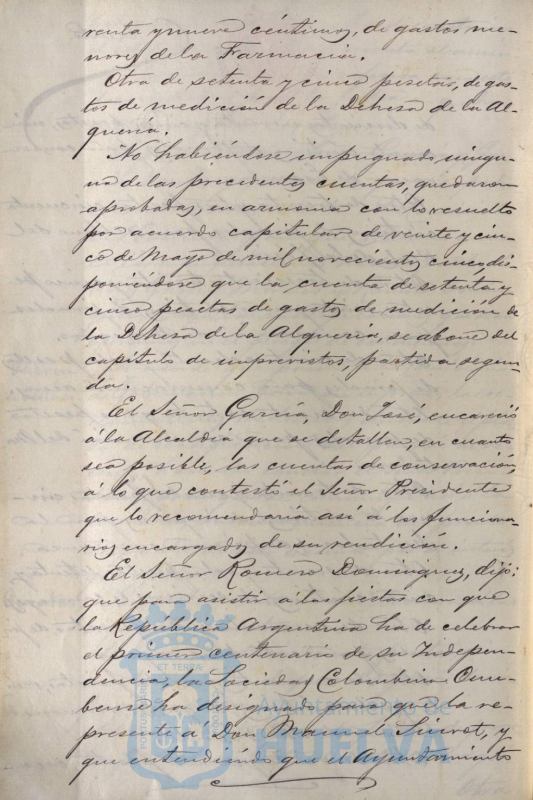 renta y nueve céntimos, de gastos me-
nores de la Farmacia.
Otra de setenta y cinco pesetas, de gas-
tos de medición de la Dehesa de la Al-
quería.
No habiéndose impugnado ningu-
na de las precedentes cuentas, quedaron
aprobadas, en armonia con lo resuelto
por acuerdo capitular de veinte y cin-
co de Mayo de mil novecientos cinco, dis-
poniéndose que la cuenta de setenta y
cinco pesetas de gastos de medición de
la Dehesa de la Alquería, se abone del
capítulo de imprevistos, partida segun-
da.
El Señor García, Don José, encareció
á la Alcaldía que se detallen, en cuanto
sea posible, las cuentas de conservación,
á lo que contestó el Señor Presidente
que lo recomendaría así á los funciona-
rios encargados de su rendición.
El Señor Romero Dominguez, dijo:
que para asistir á las fiestas con que
la República Argentina ha de celebrar
el primer centenario de su Indepen-
dencia, la Sociedad Colombina Onu-
bense ha designado para que la re-
presente á Don Manuel Siurot, y
que entendiendo que el Ayuntamiento
Ayuntamiento de
HUELVA